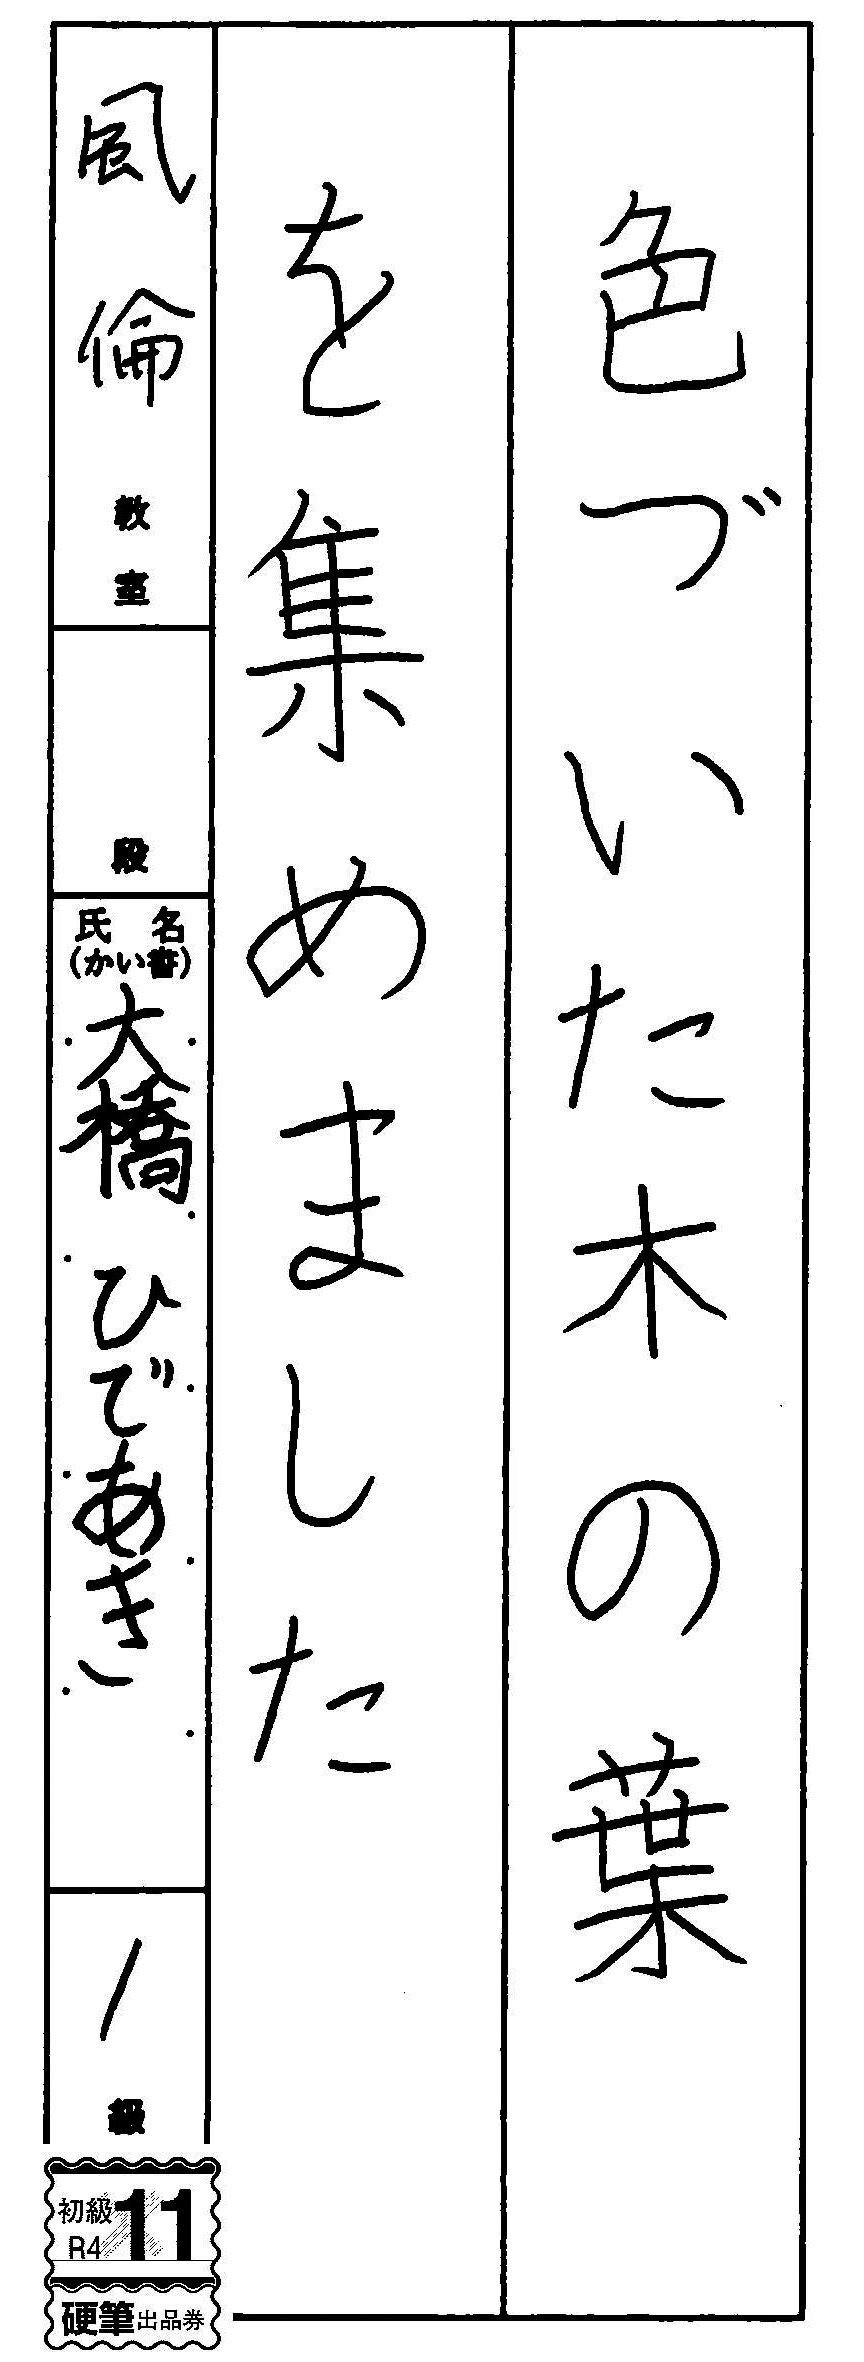 色づいた木の葉
を集めました
風倫教室
段
氏名
(かい書)
大橋ひであき
1級
初級
R4
11
硬筆出品券